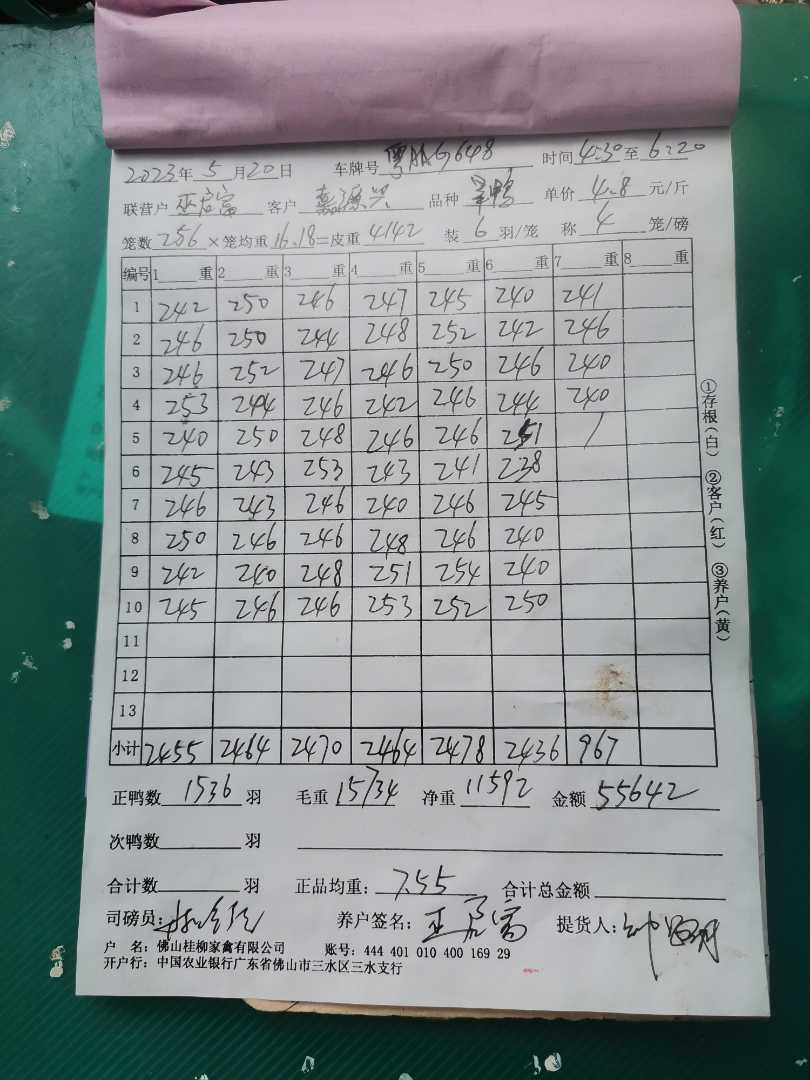 2023年 5月20日 车牌号 G648 时间 4:30 至 6:20
联营户 巫启富 客户 嘉源兴 品种 单鸭 单价 4.8 元/斤
笼数 256 ×笼均重 16.18 =皮重 4142 装 6 羽/笼 称 4 笼/磅
编号 1 重 2 重 3 重 4 重 5 重 6 重 7 重 8 重
1 242 250 246 247 245 240 241
2 246 250 244 248 252 242 246
3 246 252 247 246 250 246 240
4 253 244 246 242 246 244 240
5 240 250 248 246 246 251 /
6 245 243 253 243 241 238
7 246 243 246 240 246 245
8 250 246 246 248 246 240
9 242 240 248 251 254 240
10 245 246 246 253 252 250
11
12
13
小计 2455 2464 2470 2464 2478 2436 967
正鸭数 1536 羽 毛重 15734 净重 11592 金额 55642
次鸭数 羽
合计数 羽 正品均重： 7.55 合计总金额
司磅员： 养户签名： 巫启富 提货人：
户 名：佛山桂柳家禽有限公司 账号：444 401 010 400 169 29
开户行：中国农业银行广东省佛山市三水区三水支行
①存根（白） ②客户（红） ③养户（黄）